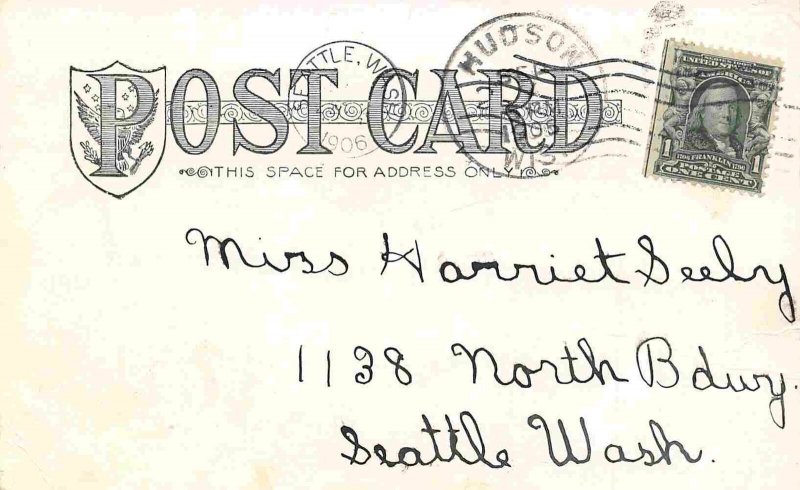 SEATTLE, WASH.
1906
HUDSON
WIS.
POST CARD
THIS SPACE FOR ADDRESS ONLY
UNITED STATES OF
AMERICA
FRANKLIN
1 1
POSTAGE
ONE CENT
Miss Harriet Seely
1138 North Bdwy.
Seattle Wash.